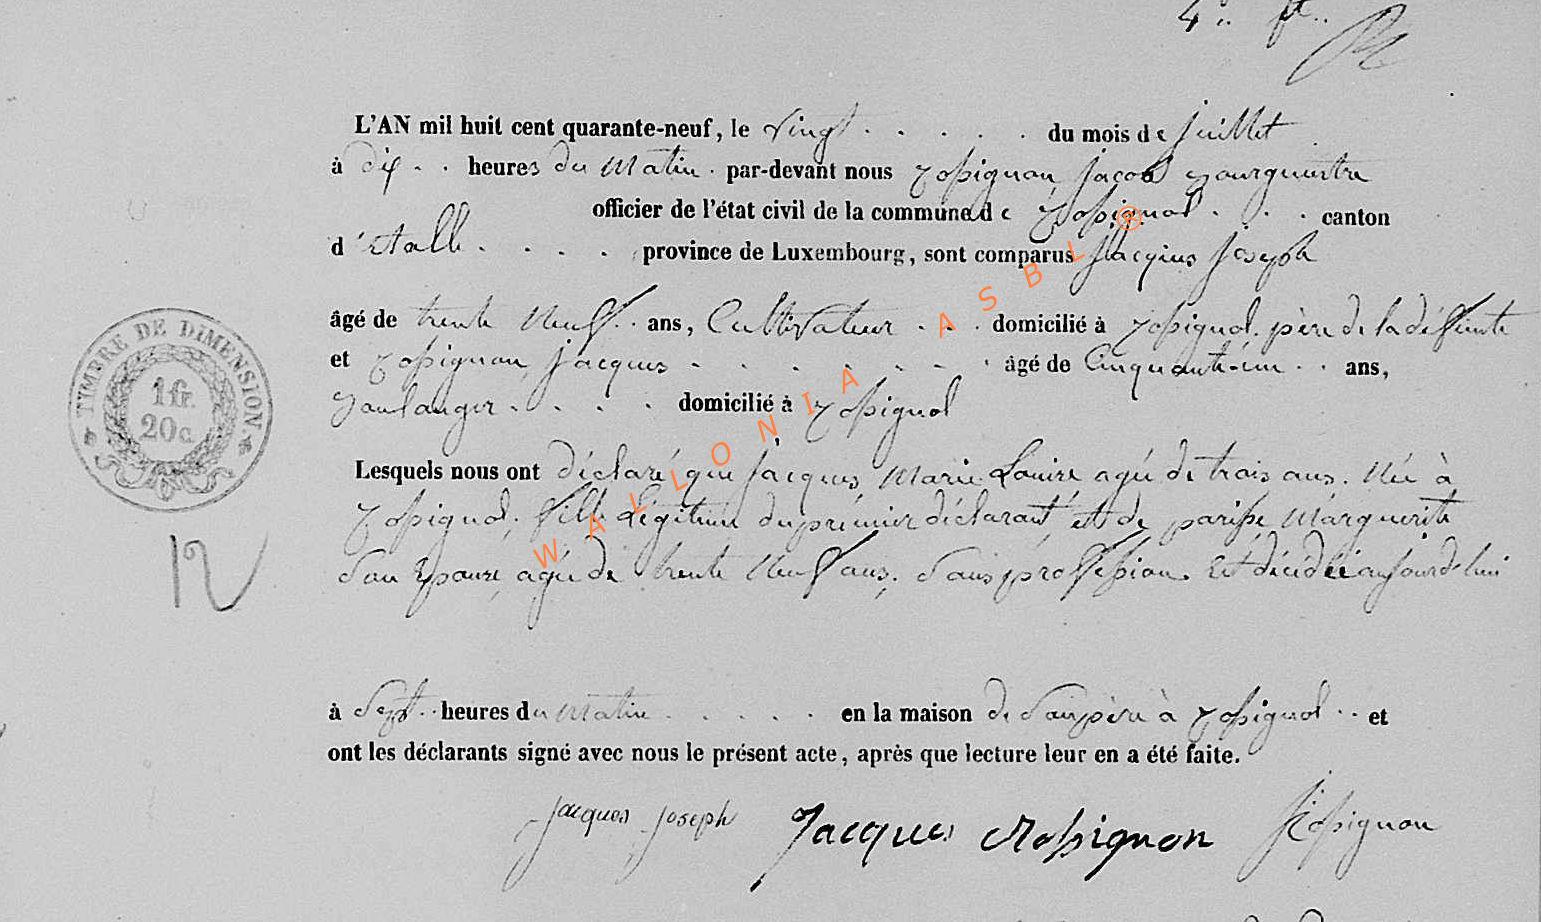 4..
L'AN mil huit cent quarante-neuf, le vingt . . . . . du mois de juillet
à dix . . heures du matin . par-devant nous Rossignon Jacob Bourguestre
officier de l'état civil de la commune de Rossignol . . . canton
d'Etalle . . . . province de Luxembourg, sont comparus Jacques Joseph
âgé de trente neuf . . ans, Cultivateur . . . domicilié à Rossignol. père de la déffunte
et Rossignon Jacques . . . . . . . . âgé de Cinquante-un . . ans,
Boulanger . . . . domicilié à Rossignol
Lesquels nous ont déclaré que Jacques Marie Louise agée de trois ans. Née à
Rossignol, fille Légitime du prémier déclarant et de parisse Marguerite
Son Epouse, agée de trente Neuf ans, Sans proffession. Est décédée aujourd'hui
à Sept . . heures du matin . . . . . en la maison de Son père à Rossignol . . et
ont les déclarants signé avec nous le présent acte, après que lecture leur en a été faite.
Jacques Joseph Jacques Rossignon Rossignon
TIMBRE DE DIMENSION.
1 fr.
20 c.
12
WALLONIA ASBL ®